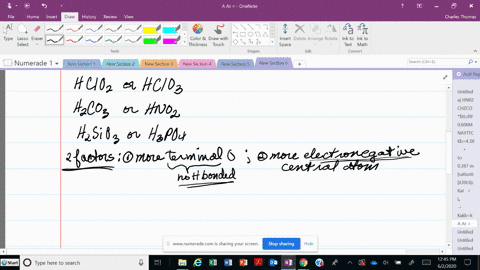 A Ar + - OneNote
Charles Thomas
File Home Insert Draw View Help
Type Lasso Select Eraser
Color & Thickness Draw with Touch
Shapes
Insert Space
Delete
Ink to Text Ink to Math
Numerade 1 New Section 1 New Section 2 New Section 3 New Section 4 New Section 5 New Section 6
HClO2 or HClO3
H2CO3 or HNO2
H2SiO3 or H3PO4
2 factors: ① more terminal O ; ② more electronegative
not H bonded
central atom
Add Page
Untitled
Untitled
A Ar +
Untitled
Untitled
Untitled
www.numerade.com is sharing your screen. Stop sharing Hide
Start
Type here to search
12:45 PM
6/2/2020